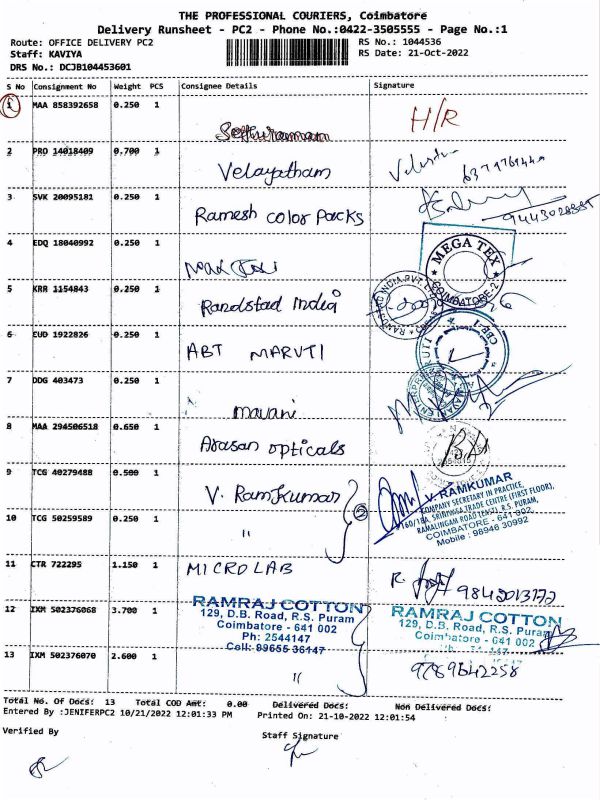 THE PROFESSIONAL COURIERS, Coimbatore
Delivery Runsheet - PC2 - Phone No.:0422-3505555 - Page No.:1
Route: OFFICE DELIVERY PC2
RS No.: 1044536
Staff: KAVIYA
RS Date: 21-Oct-2022
DRS No.: DCJB104453601
S No Consignment No Weight PCS Consignee Details Signature
1 MAA 858392658 0.250 1
H/R
2 PRO 14018409 0.700 1
Velayatham
3 SVK 20095181 0.250 1
Ramesh color Packs
4 EDQ 18040992 0.250 1
MEGA TEX
COIMBATORE-2
5 KRR 1154843 0.250 1
Randstad India
6 EUD 1922826 0.250 1
ABT MARUTI
7 DDG 403473 0.250 1
mavani
8 MAA 294506518 0.650 1
Arasan opticals
9 TCG 40279488 0.500 1
V. Ramkumar
V. RAMKUMAR
COMPANY SECRETARY IN PRACTICE,
160/18A, SRINIVASA TRADE CENTRE (FIRST FLOOR),
RAMALINGAM ROAD (EAST), R.S. PURAM,
COIMBATORE - 641 002.
Mobile : 98946 30992
10 TCG 50259589 0.250 1
"
11 CTR 722295 1.150 1
MICRO LAB
9842013172
12 IXM 502376068 3.700 1
RAMRAJ COTTON
129, D.B. Road, R.S. Puram
Coimbatore - 641 002
Ph: 2544147
Cell: 89655 36147
RAMRAJ COTTON
129, D.B. Road, R.S. Puram
Coimbatore - 641 002
13 IXM 502376070 2.600 1
"
Total No. Of Docs: 13 Total COD Amt: 0.00 Delivered Docs: Non Delivered Docs:
Entered By :JENIFERPC2 10/21/2022 12:01:33 PM Printed On: 21-10-2022 12:01:54
Verified By
Staff Signature